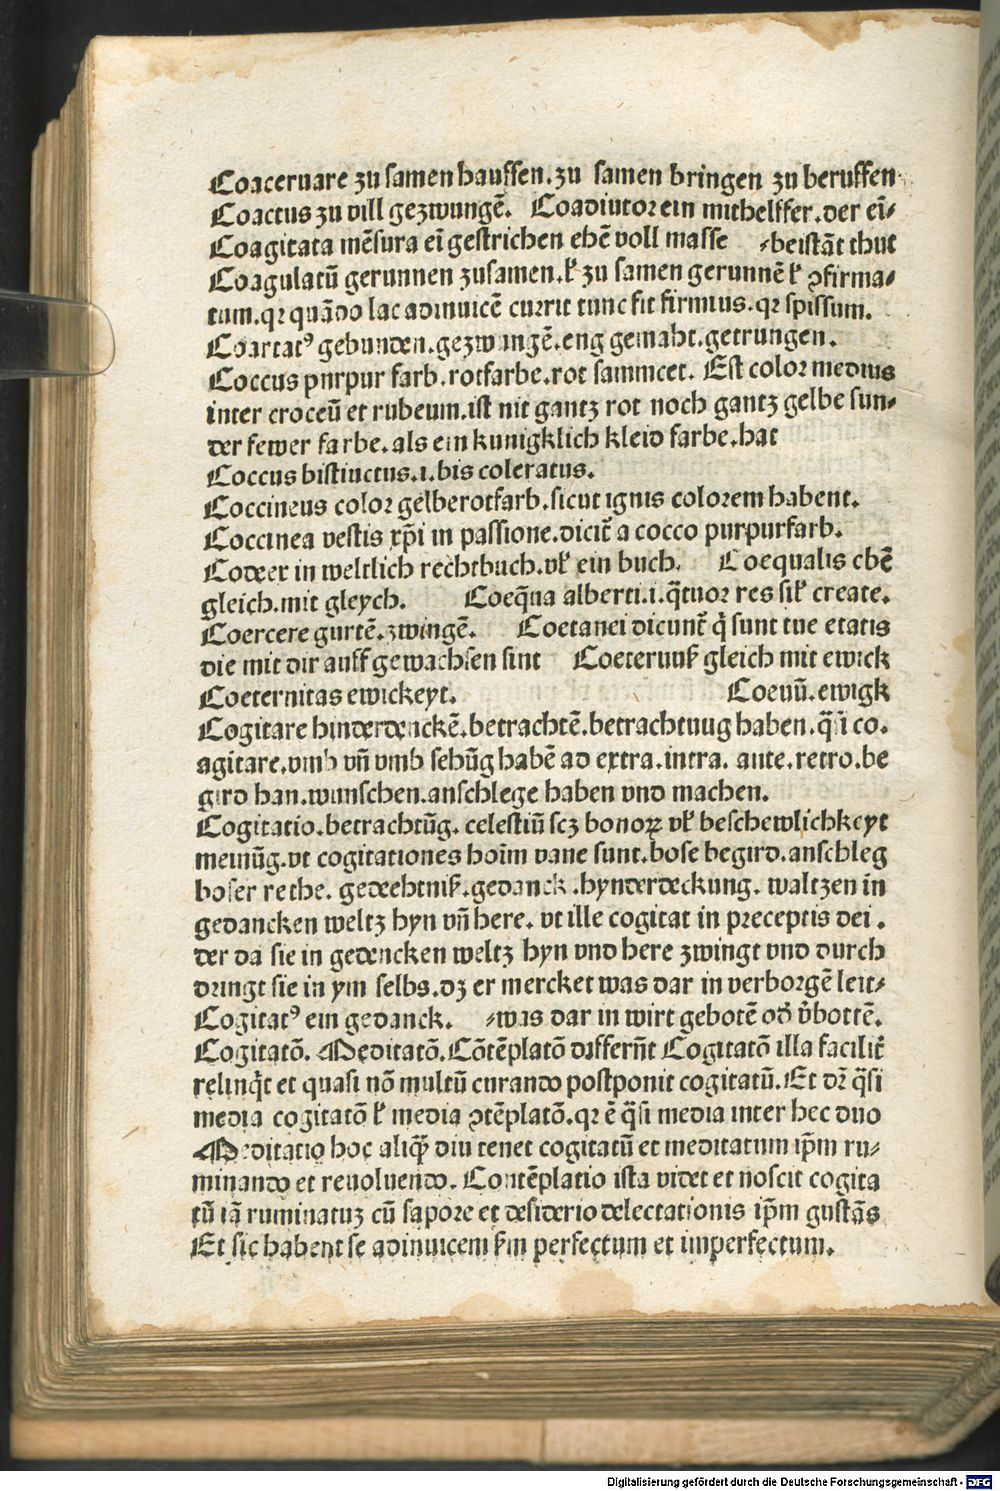 Coaceruare zu samen hauffen.zu samen bringen zu beruffen
Coactus zu vill gezwungē. Coadiutor ein mithelffer.der eī⸗
Coagitata mēsura eī gestrichen ebē voll masse ⸗beistāt thut
Coagulatū gerunnen zusamen.ł zu samen gerunnē ł ꝯfirma⸗
tum.qr quādo lac adinuicē currit tunc fit firmius.qr spissum.
Coartatꝰ gebunden.gezwungē.eng gemaht.getrungen.
Coccus purpur farb.rotfarbe.rot sammcet. Est color medius
inter croceū et rubeum.ist nit gantz rot noch gantz gelbe sun⸗
der fewer farbe.als ein kunigklich kleid farbe.hat
Coccus bistinctus.i.bis coleratus.
Coccineus color gelberotfarb.sicut ignis colorem habent.
Coccinea vestis xp̄i in passione.dicit̄ a cocco purpurfarb.
Codex in weltlich rechtbuch.vł ein buch. Coequalis ebē
gleich.mit gleych. Coeq̄ua alberti.i.q̄tuor res sił create.
Coercere gurtē.zwingē. Coetanei dicunt̄ q̄ sunt tue etatis
die mit dir auff gewachsen sint Coeternuß gleich mit ewick
Coeternitas ewickeyt. Coeuū.ewigk
Cogitare hinderdenckē.betrachtē.betrachtuug haben.q̄ī co.
agitare.vmb vn̄ vmb sehūg habē ad extra.intra. ante.retro.be
gird han.wunschen.anschlege haben vnd machen.
Cogitatio.betrachtūg. celestiū scz bonoꝝ vł beschewlichkeyt
meinūg.vt cogitationes hoīm vane sunt.bose begird.anschleg
boser rethe. gedechtniß.gedanck.hynderdeckung. waltzen in
gedancken weltz hyn vn̄ here. vt ille cogitat in preceptis dei.
der da sie in gedencken weltz hyn vnd here zwingt vnd durch
dringt sie in ym selbs.dz er mercket was dar in verborgē leit⸗
Cogitatꝰ ein gedanck. ⸗was dar in wirt gebotē od̄ v̄bottē.
Cogitatō. Meditatō.Cōtēplatō differūt Cogitatō illa facilit̄
relinq̄t et quasi nō multū curando postponit cogitatū.Et dr̄ q̄si
media cogitatō ł media ꝯtēplatō.qr ē q̄si media inter hec duo
Meditatio hoc aliqꝫ diu tenet cogitatū et meditatum ip̄m ru⸗
minando et reuoluendo. Contēplatio ista videt et noscit cogita
tū iā ruminatuz cū sapore et desiderio delectationis ip̄m gustās
Et sic habent se adinuicem ẜm perfectum et imperfectum.
Digitalisierung gefördert durch die Deutsche Forschungsgemeinschaft - DFG